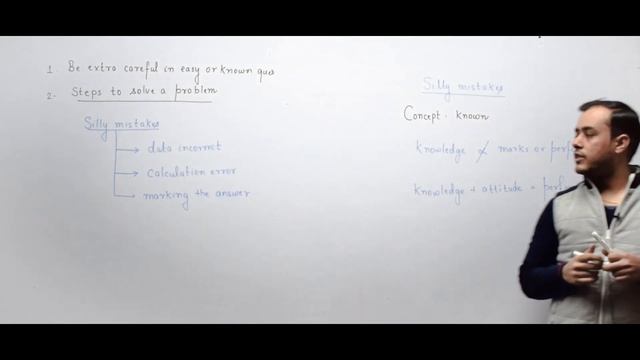 1. Be extro careful in easy or known ques
2. Steps to solve a problem
Silly mistakes
→ data incorrect
→ calculation error
→ marking the answer
Silly mistakes
Concept · known
knowledge ∝̸ marks or
knowledge + attitude =